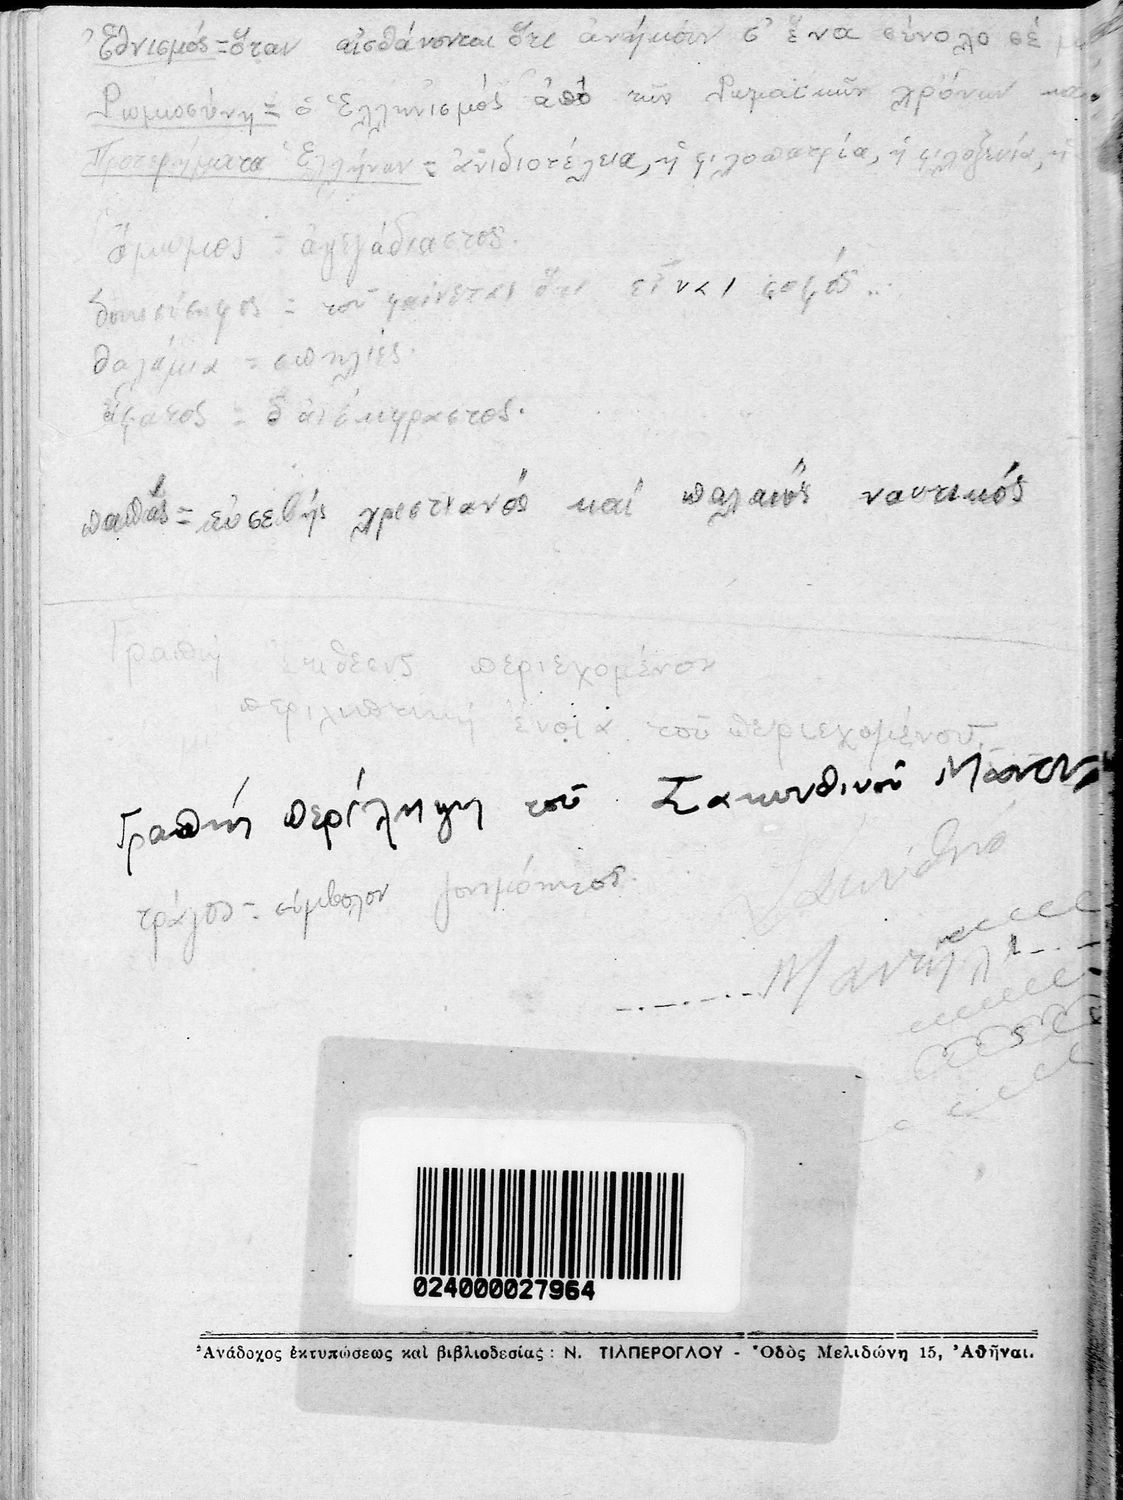 Ἐθνισμός = ὅταν αἰσθάνονται ὅτι ἀνήκουν σ' ἕνα σύνολο σέ
Ρωμιοσύνη = ὁ Ἑλληνισμός ἀπό τῶν Ρωμαϊκῶν χρόνων και
Προτερήματα Ἑλλήνων = ἀνιδιοτέλεια, ἡ φιλοπατρία, ἡ φιλοξενία, ἡ
ἄμωμος = ἀψεγάδιαστος.
δοκισίσοφος = τοῦ φαίνεται ὅτι εἶναι σοφός..
θαλάμια = σπηλιές.
ἄφατος = ὁ ἀνέκφραστος.
παπᾶς = εὐσεβής χριστιανός καί παλαιός ναυτικός
Γραπτή ἐκθέσις περιεχομένου
περιληπτική ἔνοια τοῦ περιεχομένου
Γραπτή περίληψη τοῦ Ζακυνθινοῦ
τράγος = σύμβολον γονιμότητος.
024000027964
Ἀνάδοχος ἐκτυπώσεως καὶ βιβλιοδεσίας : Ν. ΤΙΛΠΕΡΟΓΛΟΥ - Ὁδὸς Μελιδώνη 15, Ἀθῆναι.